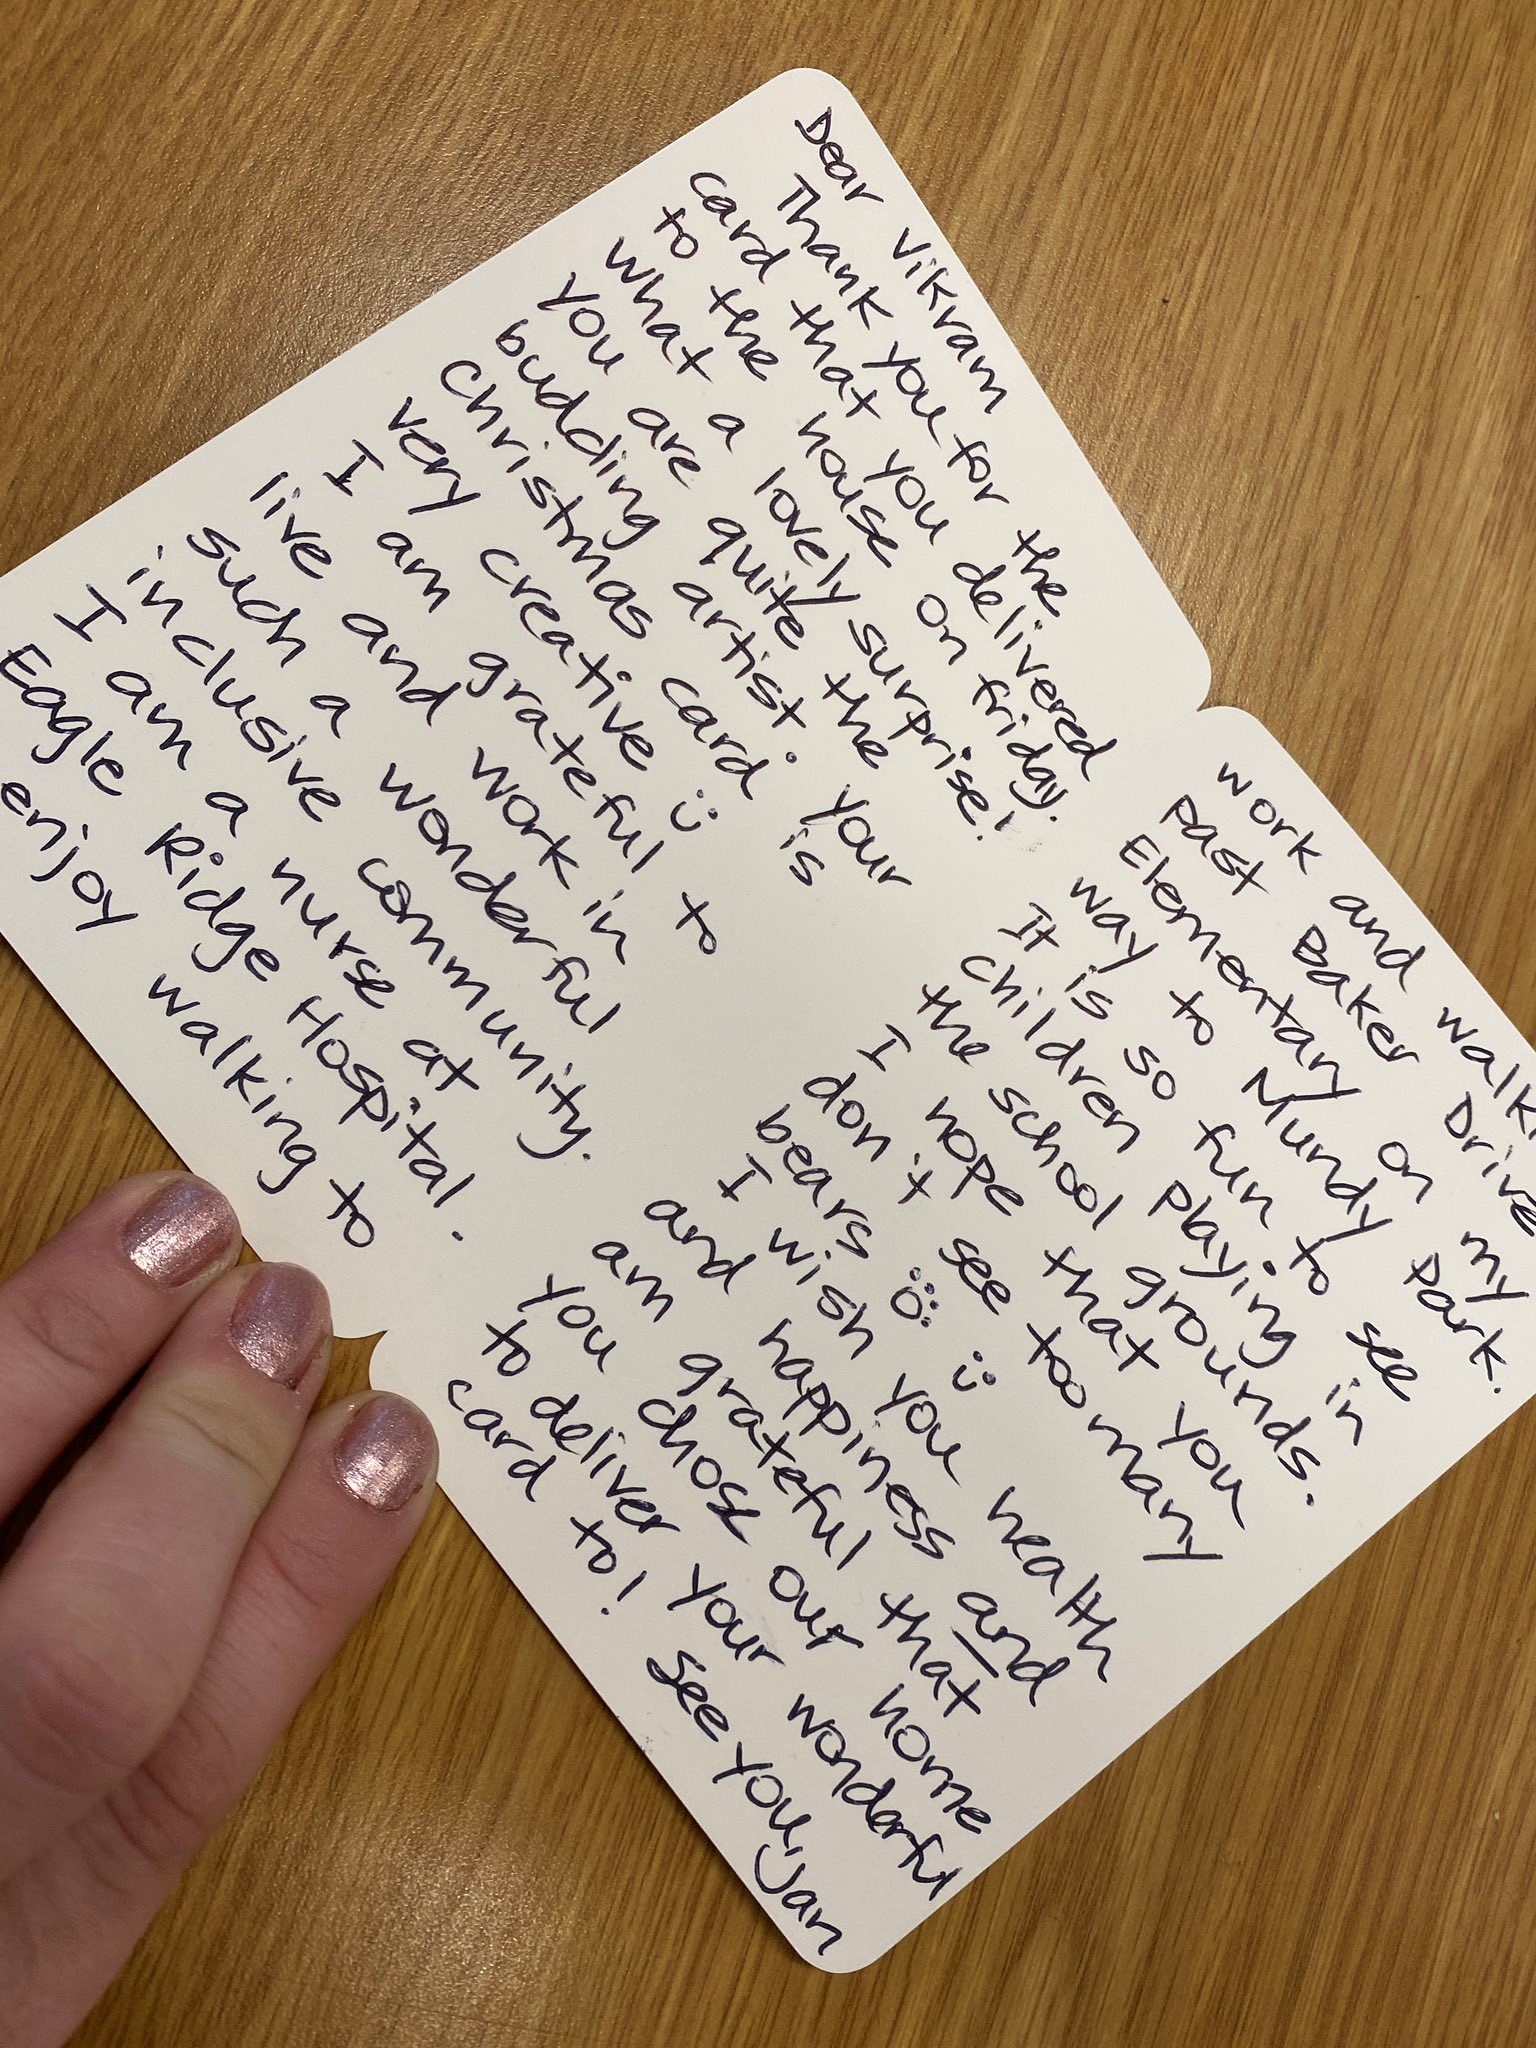 Dear Vikram
Thank you for the
card that you delivered
to the house on friday.
What a lovely surprise!
You are quite the
budding artist. Your
Christmas card is
very creative :)
I am grateful to
live and work in
such a wonderful
inclusive community.
I am a nurse at
Eagle Ridge Hospital.
enjoy walking to
work and walki
past Baker Drive
Elementary on my
way to Mundy Park.
It is so fun to see
children playing in
the school grounds.
I hope that you
don't see too many
bears :)
I wish you health
and happiness and
am grateful that
you chose our home
to deliver your wonderful
card to! See you, Jan